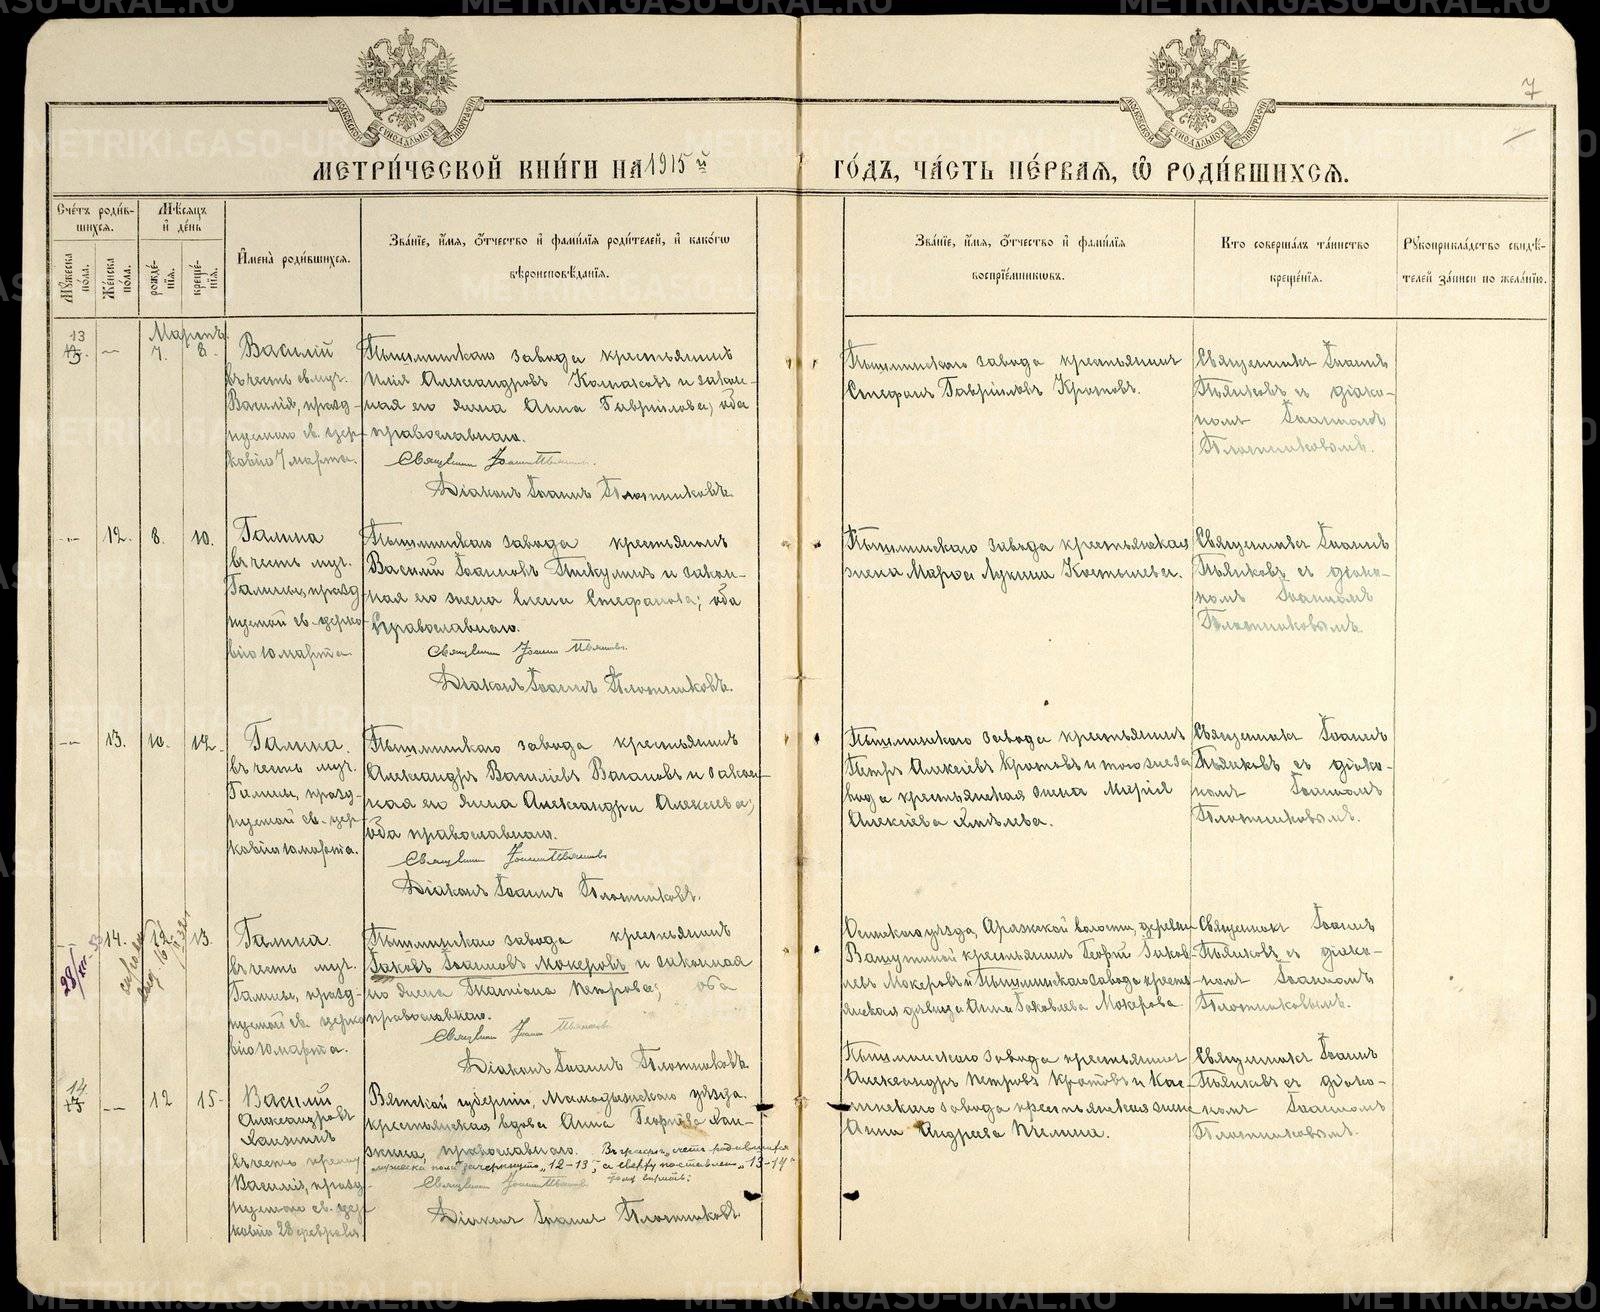 7
МОСКОВСКОЙ СѴНОДАЛЬНОЙ ТИПОГРАФІИ
МОСКОВСКОЙ СѴНОДАЛЬНОЙ ТИПОГРАФІИ
МЕТРИ́ЧЕСКОЙ КНИ́ГИ НА 1915й ГО́ДЪ, ЧА́СТЬ ПЕ́РВАѦ, Ѽ РОДИ́ВШИХСѦ.
Сче́тъ роди́в-
шихсѧ.
Мꙋ́жеска по́ла.
Же́нска по́ла.
Мѣ́сѧцъ
и҆ де́нь
рожде́-
нїѧ.
креще́-
нїѧ.
И҆мена̀ роди́вшихсѧ.
Зва́нїе, и҆́мѧ, ѻ҆́тчество и҆ фами́лїѧ роди́телей, и҆ како́гѡ
вѣроисповѣ́данїѧ.
Зва́нїе, и҆́мѧ, ѻ҆́тчество и҆ фами́лїѧ
воспрїе́мникѡвъ.
Кто̀ соверша́лъ та́инство
креще́нїѧ.
Рꙋкоприкла́дство свидѣ́-
телей за́писи по жела́нїю.
Мартъ
13
7. 8.
Василій
въ честь св. муч.
Василія, празд-
нуемаго св. цер-
ковію 7 марта.
Пышминскаго завода крестьянинъ
Илія Александровъ и закон-
ная его жена Анна Гавріилова; оба
православнаго.
Священникъ Іоаннъ Пьянковъ.
Діаконъ Іоаннъ Плотниковъ.
Пышминскаго завода крестьянинъ
Стефанъ Гавріиловъ Кротовъ.
Священникъ Іоаннъ
Пьянковъ съ діако-
номъ Іоанномъ
Плотниковымъ.
12. 8. 10.
Галина
въ честь муч.
Галины, празд-
нуемой св. церко-
вію 10 марта.
Пышминскаго завода крестьянинъ
Василій Іоанновъ Пискулинъ и закон-
ная его жена Елена Стефанова; оба
православнаго.
Священникъ Іоаннъ Пьянковъ.
Діаконъ Іоаннъ Плотниковъ.
Пышминскаго завода крестьянская
жена Марѳа Лукина Костылева.
Священникъ Іоаннъ
Пьянковъ съ діако-
номъ Іоанномъ
Плотниковымъ.
13. 10. 12.
Галина.
въ честь муч.
Галины, празд-
нуемой св. цер-
ковію 10 марта.
Пышминскаго завода крестьянинъ
Александръ Василіевъ Вагановъ и закон-
ная его жена Александра Алексіева;
оба православнаго.
Священникъ Іоаннъ Пьянковъ
Діаконъ Іоаннъ Плотниковъ.
Пышминскаго завода крестьянинъ
Петръ Алексіевъ Кротовъ и того же за
вода крестьянская жена Марія
Алексіева
Священникъ Іоаннъ
Пьянковъ съ діако-
номъ Іоанномъ
Плотниковымъ.
14. 12 13.
Галина.
въ честь муч.
Галины, празд-
нуемой св. церко
вію 10 марта.
Пышминскаго завода крестьянинъ
Іаковъ Іоанновъ Мокеровъ и законная
его жена Татіана Петрова; оба
православнаго.
Священникъ Іоаннъ Пьянковъ
Діаконъ Іоаннъ Плотниковъ.
Осинскаго уѣзда, волости, деревни
крестьянинъ Георгій Іаков-
левъ Мокеровъ и Пышминскаго завода кресть-
янская дѣвица Анна Іаковлева Мокерова
Священникъ Іоаннъ
Пьянковъ съ діако-
номъ Іоанномъ
Плотниковымъ.
14
12 15.
Василій
Александровъ
въ честь препод.
Василія, празд-
нуемаго св. цер-
ковію 28 февраля.
Вятской губерніи, Мамадышскаго уѣзда
крестьянская вдова Анна Георгіева
православнаго. Въ графѣ „счетъ родившихся
мужеска пола" зачеркнуто „12-13", а сверху поставлено „13-14"
Священникъ Іоаннъ Пьянковъ
Діаконъ Іоаннъ Плотниковъ.
Пышминскаго завода крестьянинъ
Александръ Петровъ Кротовъ и
завода крестьянская жена
Анна Андреева
Священникъ Іоаннъ
Пьянковъ съ діако-
номъ Іоанномъ
Плотниковымъ.
METRIKI.GASO-URAL.RU